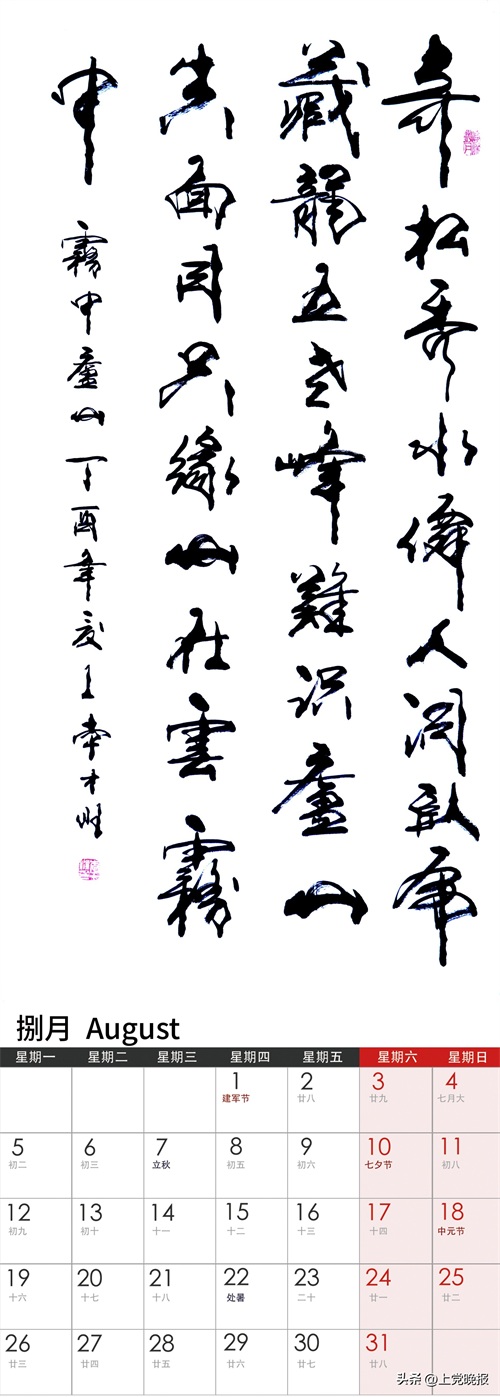 奇松秀水僊人洞卧虎
藏龍五老峰難识廬山
真面目只緣山在雲霧
中
霧中廬山丁酉年夏李才旺
捌月 August
星期一 星期二 星期三 星期四 星期五 星期六 星期日
1 2 3 4
建军节 廿八 廿九 七月大
5 6 7 8 9 10 11
初二 初三 立秋 初五 初六 七夕节 初八
12 13 14 15 16 17 18
初九 初十 十一 十二 十三 十四 中元节
19 20 21 22 23 24 25
十六 十七 十八 处暑 二十 廿一 廿二
26 27 28 29 30 31
廿三 廿四 廿五 廿六 廿七 廿八
头条 @上党晚报